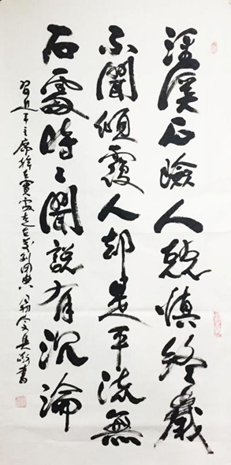 涇溪石險人兢慎終歲
不聞傾覆人却是平流無
石處時々聞說有沉淪
習近平主席 用典 書